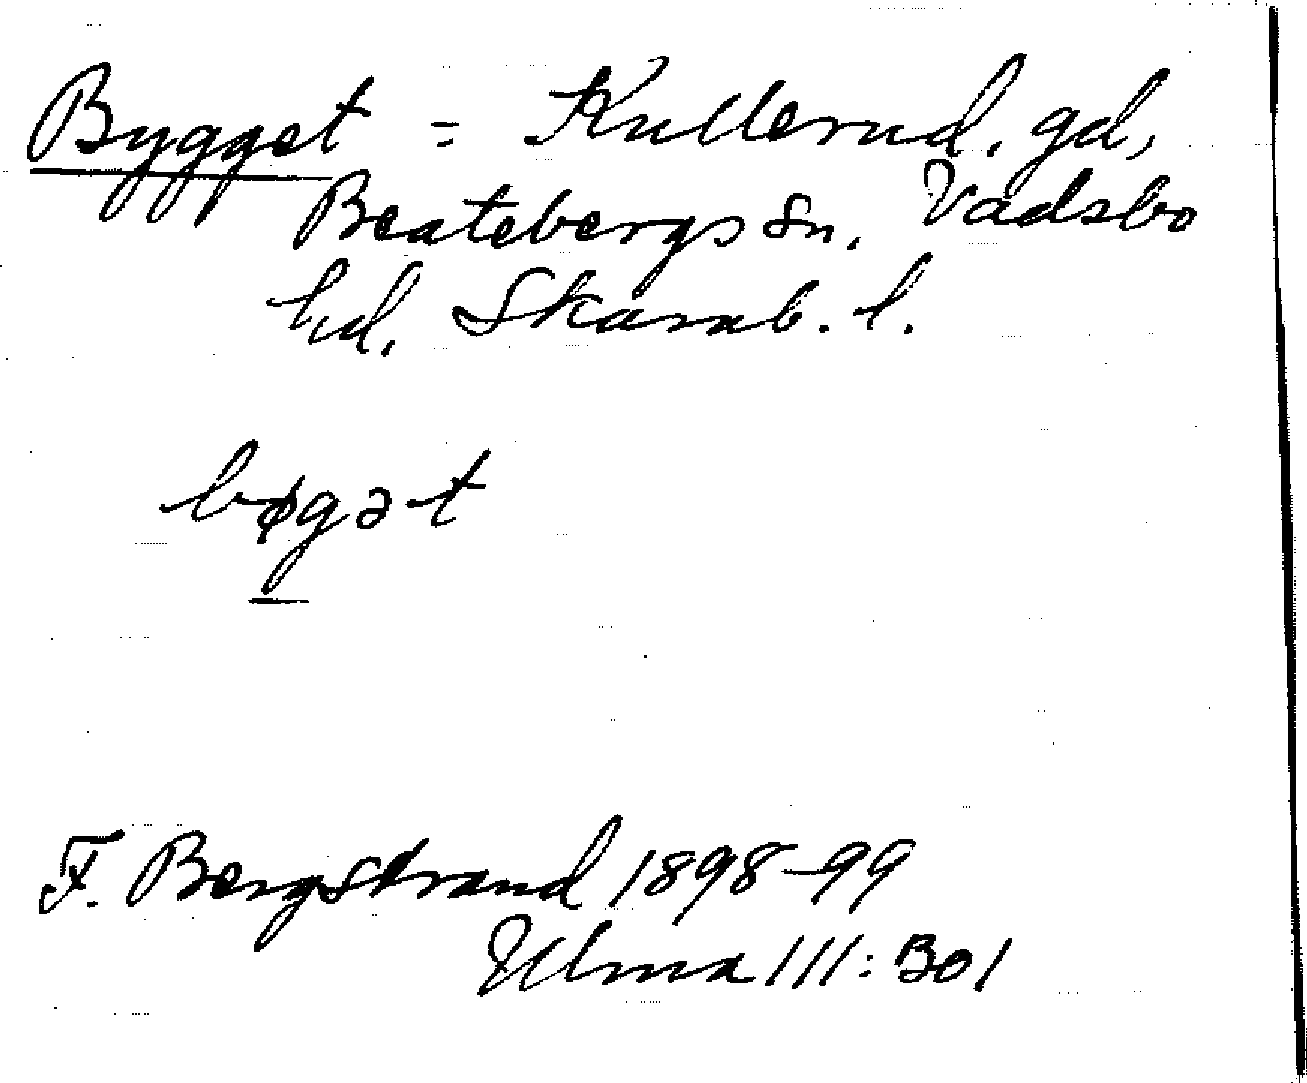 Bygget = Kullerud, gd,
Beatebergs sn. Vadsbo
hd, Skarab. l.
bøgət
F. Bergstrand 1898-99
Ulma 111:301